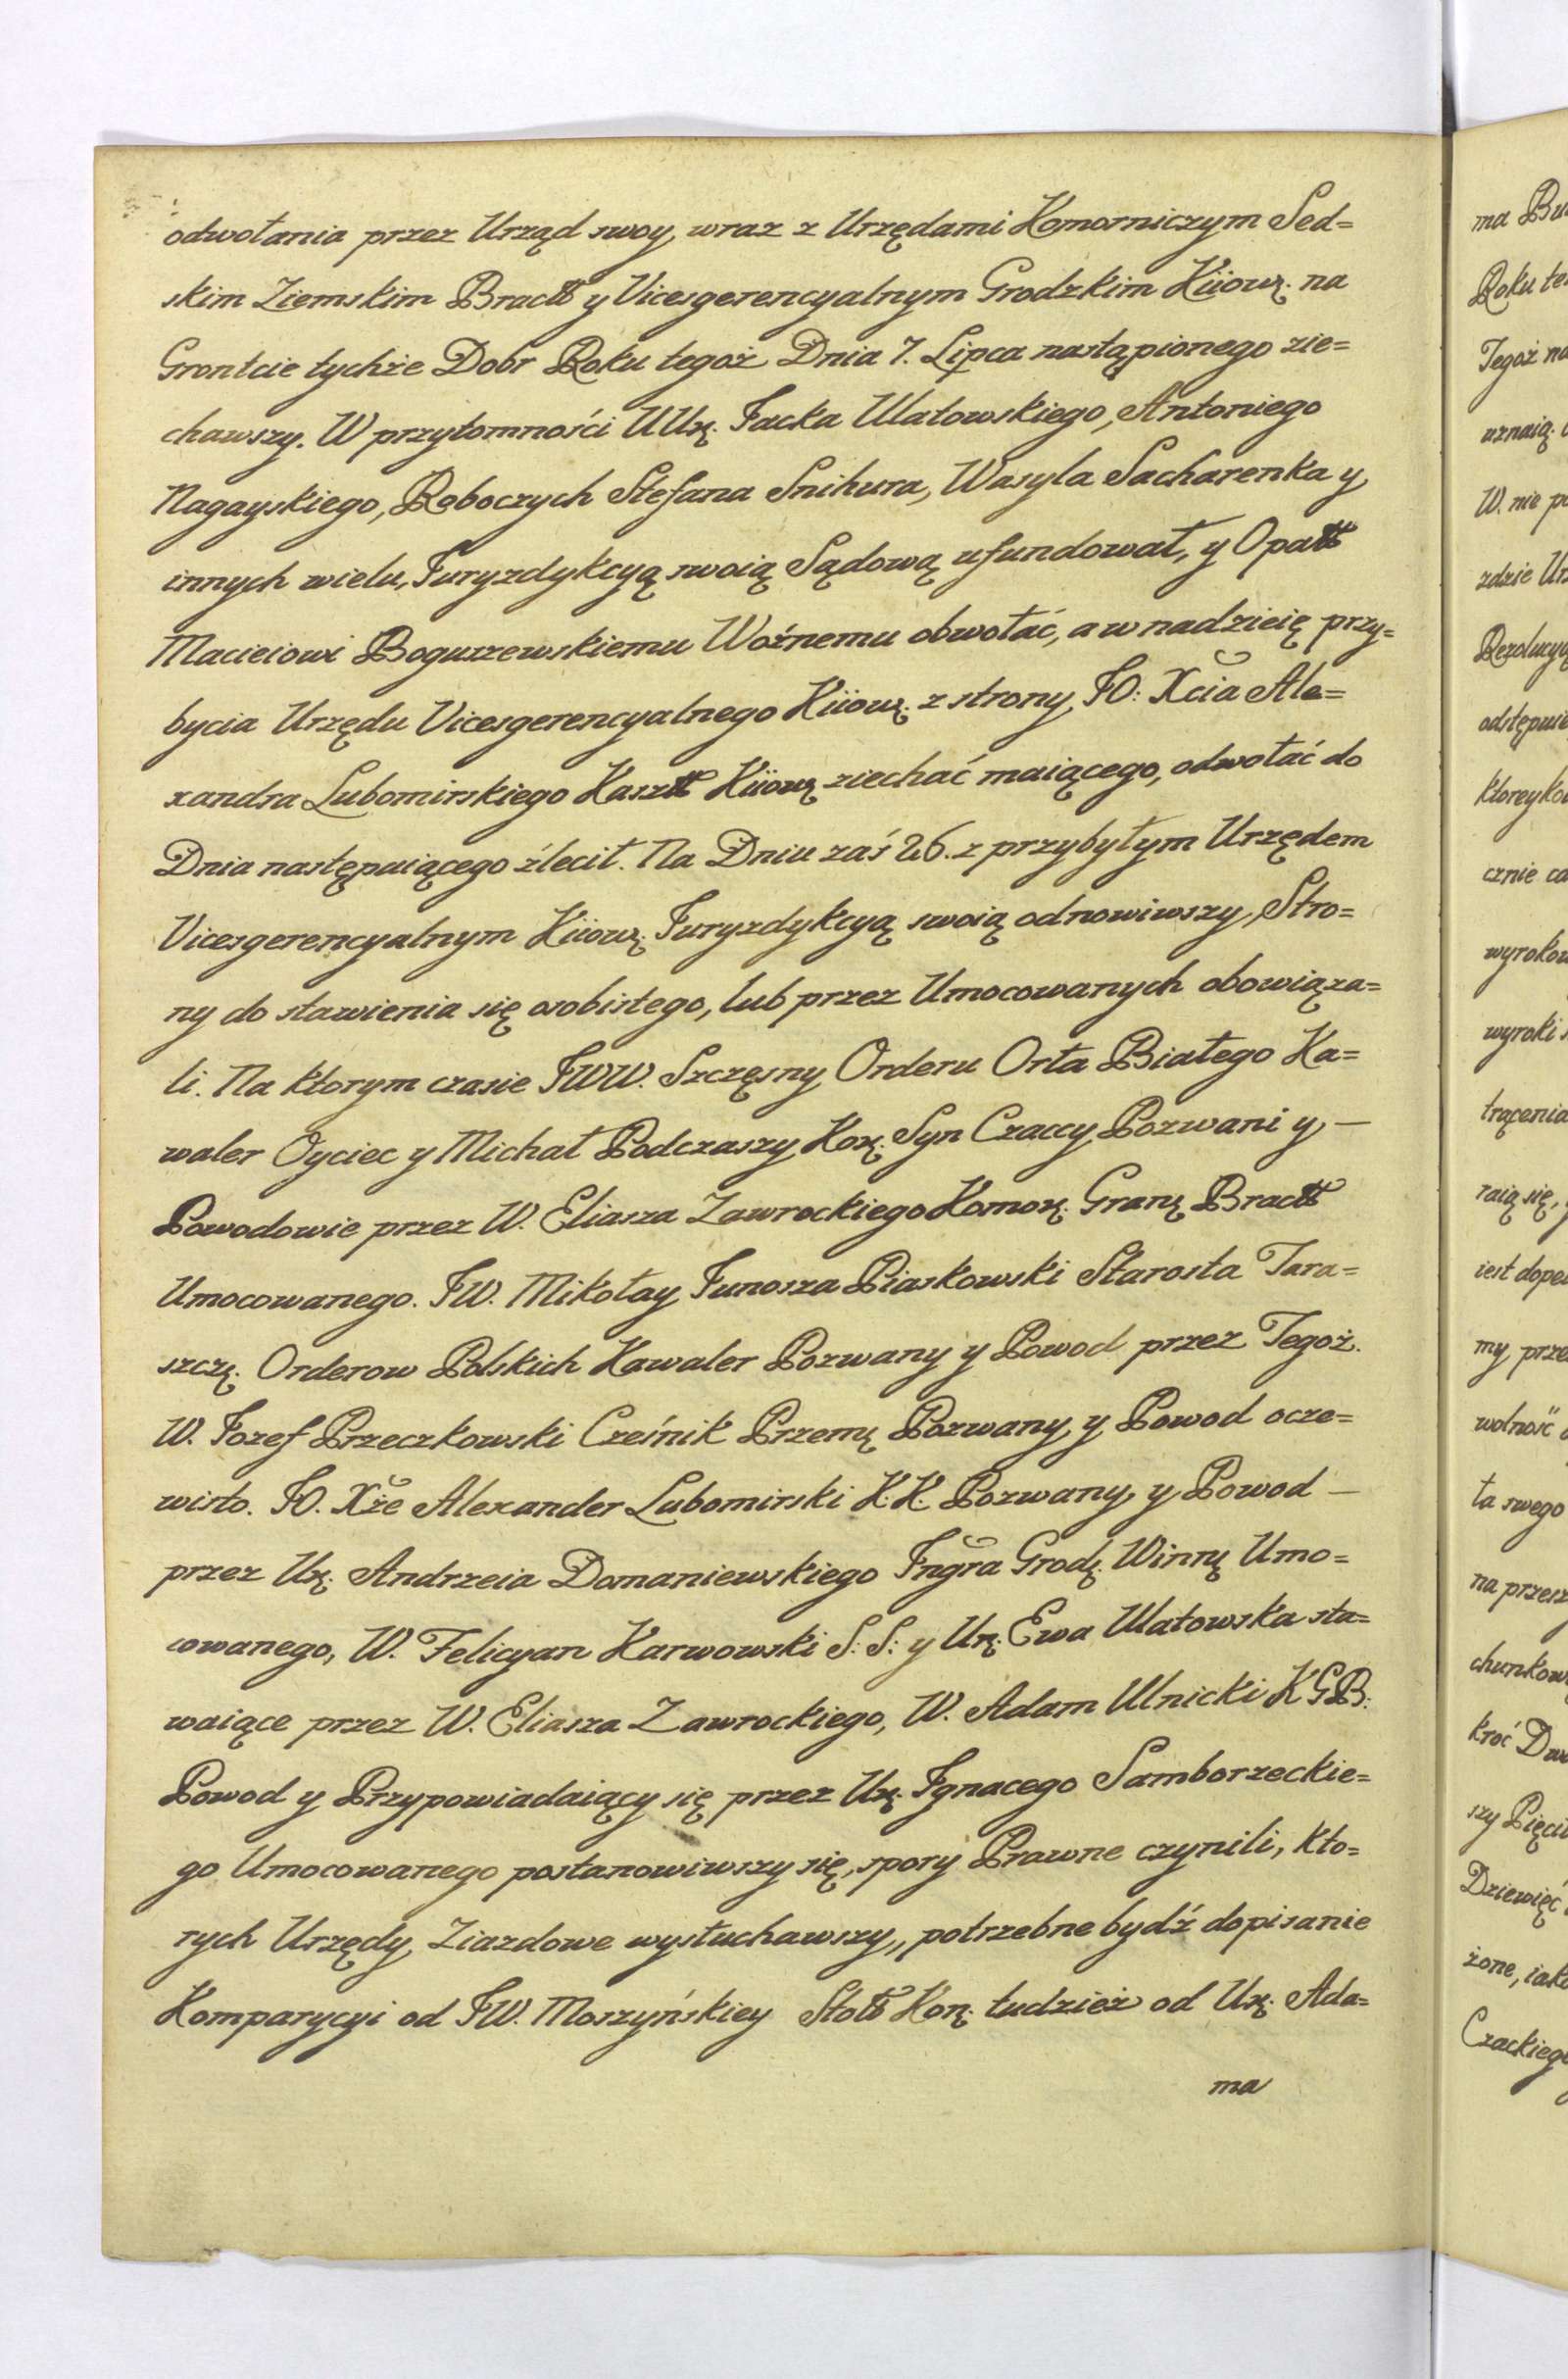 odwołania przez Urząd swoy, wraz z Urzędami Komorniczym Sed=
skim Ziemskim Bractt y Vicesgerencyalnym Grodzkim Kiiowz: na
Grontcie tychże Dobr Roku tegoż Dnia 7. Lipca nastąpionego zie=
chawszy. W przytomności UUrz: Jacka Ulatowskiego, Antoniego
Nagayskiego, Roboczych Stefana Snihura, Wasyla Sacharenka y
innych wielu, Juryzdykcyą swoią Sądową ufundował, y Opatt
Macieiowi Boguszewskiemu Woźnemu obwołać, a w nadzieię przy=
bycia Urzędu Vicesgerencyalnego Kiiowz: z strony JO: Xcia Ale=
xandra Lubomirskiego Kasztt Kiiowz ziechać maiącego, odwołać do
Dnia następuiącego źlecił. Na Dniu zaś 26. z przybyłym Urzędem
Vicesgerencyalnym Kiiowz: Juryzdykcyą swoią odnowiwszy, Stro=
ny do stawienia się osobistego, lub przez Umocowanych obowiąza=
li. Na ktorym czasie JWW. Szczęsny Orderu Orła Białego Ka=
waler Oyciec y Michał Podczaszy Korz: Syn Czaccy Pozwani y —
Powodowie przez W. Eliasza Zawrockiego Komorz: Granz Bractt
Umocowanego. JW. Mikołay Junosza Piaskowski Starosta Tara=
szczz: Orderow Polskich Kawaler Pozwany y Powod przez Tegoż.
W. Jozef Przeczkowski Cześnik Przemz Pozwany, y Powod ocze=
wisto. JO. Xże Alexander Lubomirski K: K. Pozwany, y Powod —
przez Urz: Andrzeia Domaniewskiego Jngra Grodz: Winnz Umo=
cowanego, W. Felicyan Karwowski S: S: y Urz: Ewa Ulatowska sta=
waiące przez W. Eliasza Zawrockiego, W. Adam Ulnicki KGB:
Powod y Przypowiadaiący się przez Urz: Jgnacego Samborzeckie=
go Umocowanego postanowiwszy się, spory Prawne czynili, kto=
rych Urzędy, Ziazdowe wysłuchawszy, potrzebne bydź dopisanie
Komparycyi od JW. Moszyńskiey Stoltt Korz: tudzież od Urz: Ada=
ma